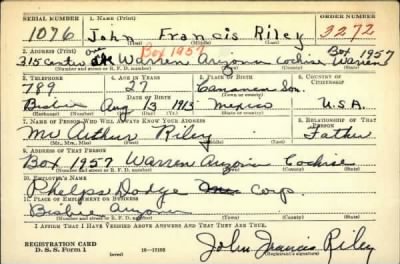 SERIAL NUMBER 1. NAME (Print) ORDER NUMBER
1076 John Francis Riley 3272
(First) (Middle) (Last)
2. ADDRESS (Print) Box 1957 Box 1957
315 Center Ave Warren Arizona Cochise Warren
(Number and street or R. F. D. number) (Town) (County) (State)
3. TELEPHONE 4. AGE IN YEARS 5. PLACE OF BIRTH 6. COUNTRY OF CITIZENSHIP
789 27 Cananea Son.
DATE OF BIRTH
Bisbee Aug 13 1913 Mexico U.S.A.
(Exchange) (Number) (Mo.) (Day) (Yr.) (State or country)
7. NAME OF PERSON WHO WILL ALWAYS KNOW YOUR ADDRESS 8. RELATIONSHIP OF THAT PERSON
Mr Arthur Riley Father
(Mr., Mrs., Miss) (First) (Middle) (Last)
9. ADDRESS OF THAT PERSON
Box 1957 Warren Arizona Cochise
(Number and street or R. F. D. number) (Town) (County) (State)
10. EMPLOYER'S NAME
Phelps Dodge Corp.
11. PLACE OF EMPLOYMENT OR BUSINESS
Bisbee Arizona
(Number and street or R. F. D. number) (Town) (County) (State)
I AFFIRM THAT I HAVE VERIFIED ABOVE ANSWERS AND THAT THEY ARE TRUE.
REGISTRATION CARD
D. S. S. Form 1 (over) 16-17105 John Francis Riley
(Registrant's signature)